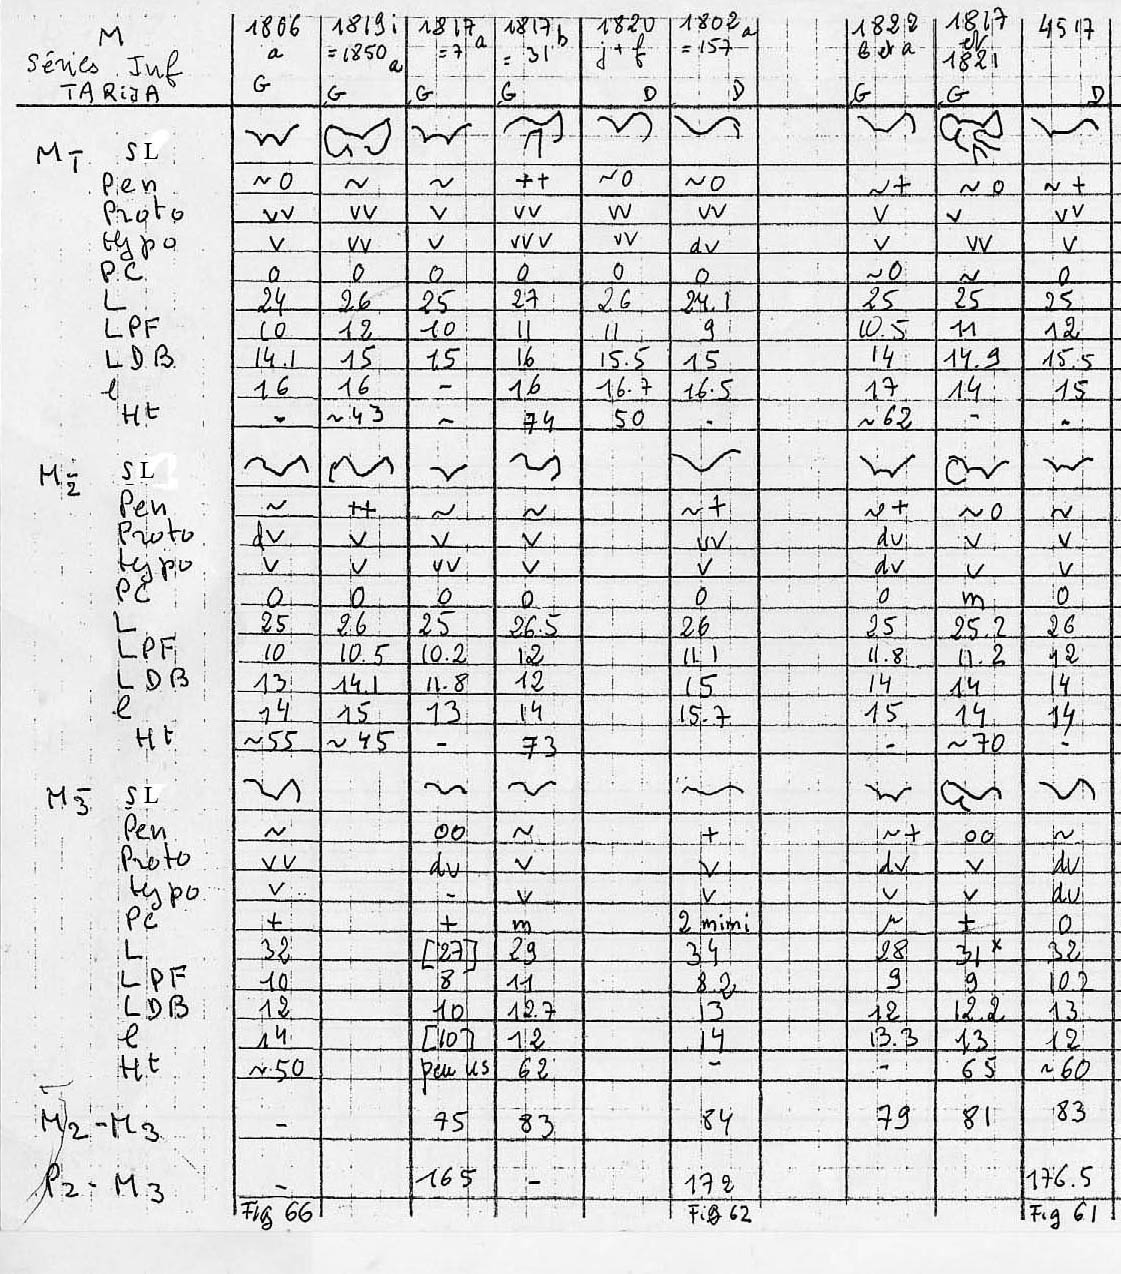 M 1806 1819i 1817a 1817b 1820 1802a 1822 1817 4517
Séries Inf a =1850a =7 = 31 j+f =157 b et a et 1821
TARIJA G G G G D D G G D
M1 SL
Pen ~0 ~ ~ ++ ~0 ~0 ~+ ~0 ~+
Proto vv vv v vv vv vv v v vv
Hypo v vv v vvv vv dv v vv v
PC 0 0 0 0 0 0 ~0 ~ 0
L 24 26 25 27 26 24.1 25 25 25
LPF 10 12 10 11 11 9 10.5 11 12
LDB 14.1 15 15 16 15.5 15 14 14.9 15.5
l 16 16 - 16 16.7 16.5 17 14 15
Ht - ~43 ~ 74 50 - ~62 - -
M2 SL
Pen ~ ++ ~ ~ ~+ ~+ ~0 ~
Proto dv v v v vv dv v v
Hypo v v vv v v dv v v
PC 0 0 0 0 0 0 m 0
L 25 26 25 26.5 26 25 25.2 26
LPF 10 10.5 10.2 12 11.1 11.8 11.2 12
LDB 13 14.1 11.8 12 15 14 14 14
l 14 15 13 14 15.7 15 14 14
Ht ~55 ~45 - 73 - ~70 -
M3 SL
Pen ~ 00 ~ + ~+ 00 ~
Proto vv dv v v dv v dv
Hypo v - v v v v dv
PC + + m 2 mimi ~ + 0
L 32 [27] 29 34 28 31* 32
LPF 10 8 11 8.2 9 9 10.2
LDB 12 10 12.7 13 12 12.2 13
l 14 [10] 12 14 13.3 13 12
Ht ~50 peu us 62 - - 65 ~60
M2-M3 - 75 83 84 79 81 83
P2-M3 - 165 - 172 176.5
Fig 66 Fig 62 Fig 61